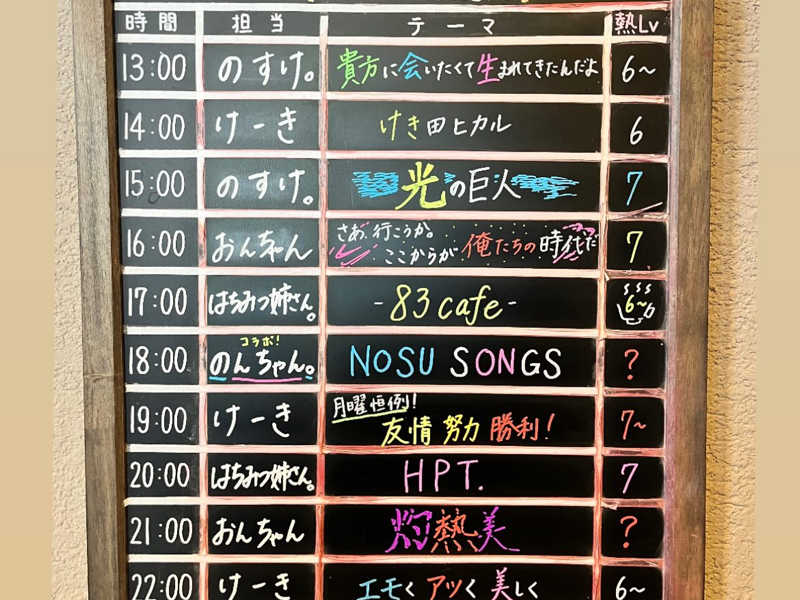 時間 担当 テーマ 熱Lv
13:00 のすけ。 貴方に会いたくて生まれてきたんだよ 6~
14:00 けーき けき田ヒカル 6
15:00 のすけ。 光の巨人 7
16:00 おんちゃん さあ、行こうか。 ここからが俺たちの時代だ 7
17:00 はちみつ姉さん。 -83cafe- 6~
コラボ!
18:00 のんちゃん。 NOSU SONGS ?
月曜恒例!
19:00 けーき 友情 努力 勝利! 7~
20:00 はちみつ姉さん。 HPT. 7
21:00 おんちゃん 灼熱美 ?
22:00 けーき エモく アツく 美しく 6~